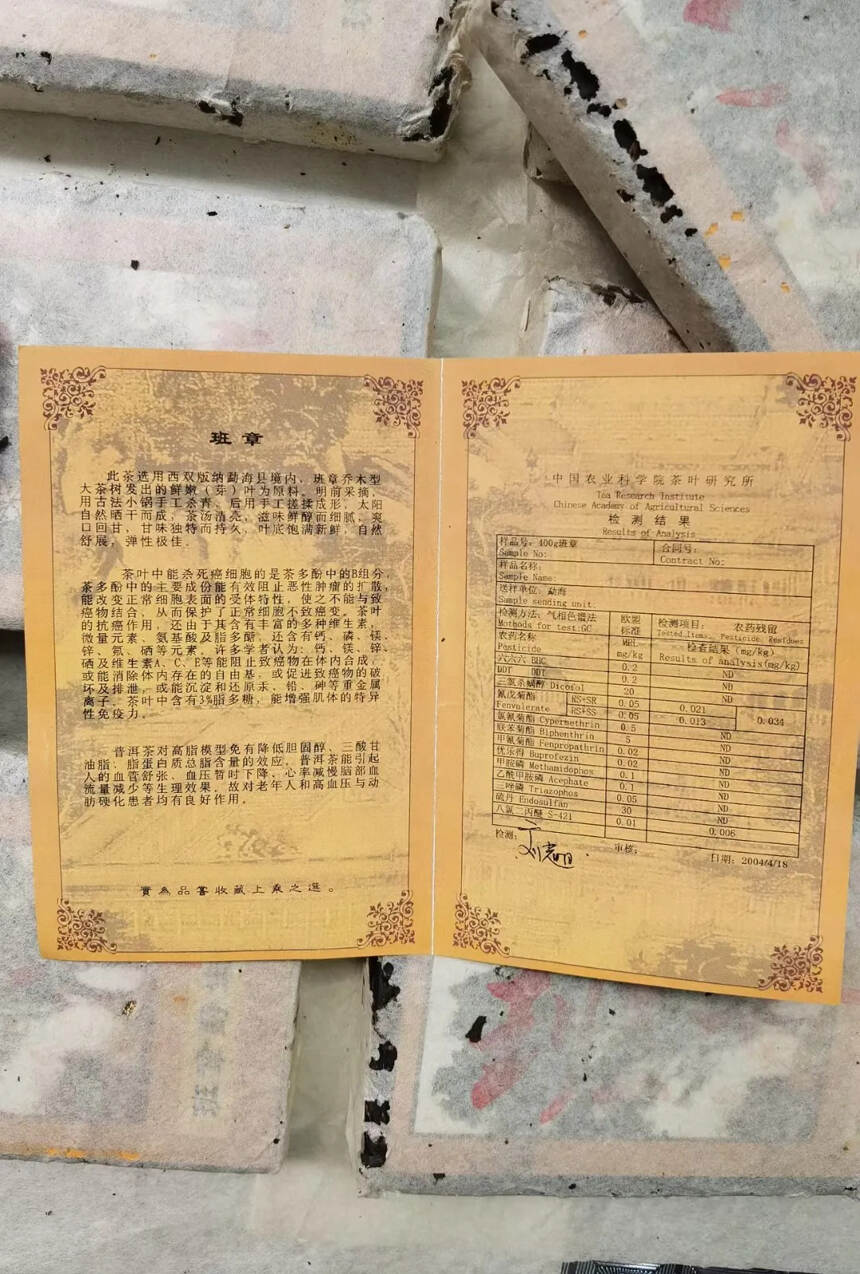 班章
此茶选用西双版纳勐海县境内，班章乔木型
大茶树发出的鲜嫩（芽）叶为原料。明前采摘，
用古法小锅手工杀青，后用手工搓揉成形，太阳
自然晒干而成，茶汤清亮，滋味鲜醇而细腻，爽
口回甘，甘味独特而持久，叶底饱满新鲜，自然
舒展，弹性极佳．
茶叶中能杀死癌细胞的是茶多酚中的B组分，
茶多酚中的主要成份能有效阻止恶性肿瘤的扩散，
能改变正常细胞表面的受体特性，使之不能与致
癌物结合，从而保护了正常细胞不致癌变。茶叶
的抗癌作用，还由于其含有丰富的多种维生素，
微量元素、氨基酸及脂多醣，还含有钙、磷、镁、
锌、氟、硒等元素。许多学者认为：钙、镁、锌、
硒及维生素A、C、E等能阻止致癌物在体内合成，
或能消除体内存在的自由基，或促进致癌物的破
坏及排泄，或能沉淀和还原汞、铅、砷等重金属
离子。茶叶中含有3%脂多糖，能增强肌体的特异
性免疫力。
普洱茶对高脂模型免有降低胆固醇、三酸甘
油脂、脂蛋白质总脂含量的效应，普洱茶能引起
人的血管舒张、血压暂时下降、心率减慢脑部血
流量减少等生理效果。故对老年人和高血压与动
肪硬化患者均有良好作用。
實為品嘗收藏上乘之選。
中国农业科学院茶叶研究所
Tea Research Institute
Chinese Academy of Agricultural Sciences
检测结果
Results of Analysis
样品号：400g班章 合同号：
Sample No: Contract No:
样品名称：
Sample Name:
送样单位：勐海
Sample sending unit:
检测方法：气相色谱法 欧盟 检测项目： 农药残留
Methods for test:GC 标准 Tested Items: Pesticide Residues
农药名称 MRL 检查结果（mg/kg）
Pesticide mg/kg Results of analysis(mg/kg)
六六六 BHC 0.2 ND
DDT DDT 0.2 ND
三氯杀螨醇 Dicofol 20 ND
氰戊菊酯 RS+SR 0.05 0.021 0.034
Fenvalerate RS+SS 0.05 0.013
氯氰菊酯 Cypermethrin 0.5 ND
联苯菊酯 Biphenthrin 5 ND
甲氰菊酯 Fenpropathrin 0.02 ND
优乐得 Buprofezin 0.02 ND
甲胺磷 Methamidophos 0.1 ND
乙酰甲胺磷 Acephate 0.1 ND
三唑磷 Triazophos 0.05 ND
硫丹 Endosulfan 30 ND
八氯二丙醚 S-421 0.01 0.006
检测： 审核： 日期：2004/4/18
班章